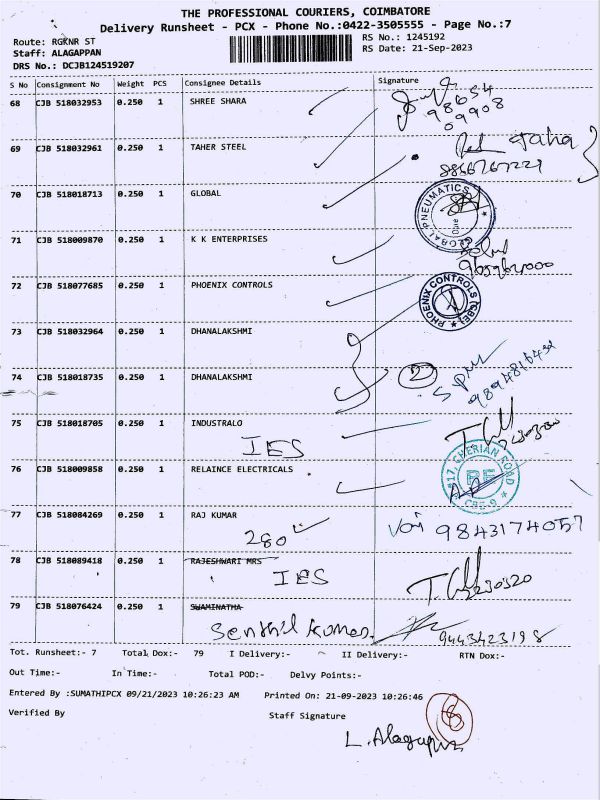 THE PROFESSIONAL COURIERS, COIMBATORE
Delivery Runsheet - PCX - Phone No.:0422-3505555 - Page No.:7
Route: RGKNR ST
RS No.: 1245192
Staff: ALAGAPPAN
RS Date: 21-Sep-2023
DRS No.: DCJB124519207
S No Consignment No Weight PCS Consignee Details Signature
68 CJB 518032953 0.250 1 SHREE SHARA
98654
09908
69 CJB 518032961 0.250 1 TAHER STEEL
Taha
70 CJB 518018713 0.250 1 GLOBAL
GLOBAL PNEUMATICS
71 CJB 518009870 0.250 1 K K ENTERPRISES
72 CJB 518077685 0.250 1 PHOENIX CONTROLS
PHOENIX CONTROLS (CBE)
73 CJB 518032964 0.250 1 DHANALAKSHMI
74 CJB 518018735 0.250 1 DHANALAKSHMI
2
75 CJB 518018705 0.250 1 INDUSTRALO
IES
76 CJB 518009858 0.250 1 RELAINCE ELECTRICALS
#17, CHERIAN ROAD
RE
CBE-9
77 CJB 518084269 0.250 1 RAJ KUMAR
280
9843174057
78 CJB 518089418 0.250 1 RAJESHWARI MRS
IES
79 CJB 518076424 0.250 1 SWAMINATHA
Senthil Kumar.
9443423198
Tot. Runsheet:- 7 Total Dox:- 79 I Delivery:- II Delivery:- RTN Dox:-
Out Time:- In Time:- Total POD:- Delvy Points:-
Entered By :SUMATHIPCX 09/21/2023 10:26:23 AM Printed On: 21-09-2023 10:26:46
Verified By Staff Signature
6